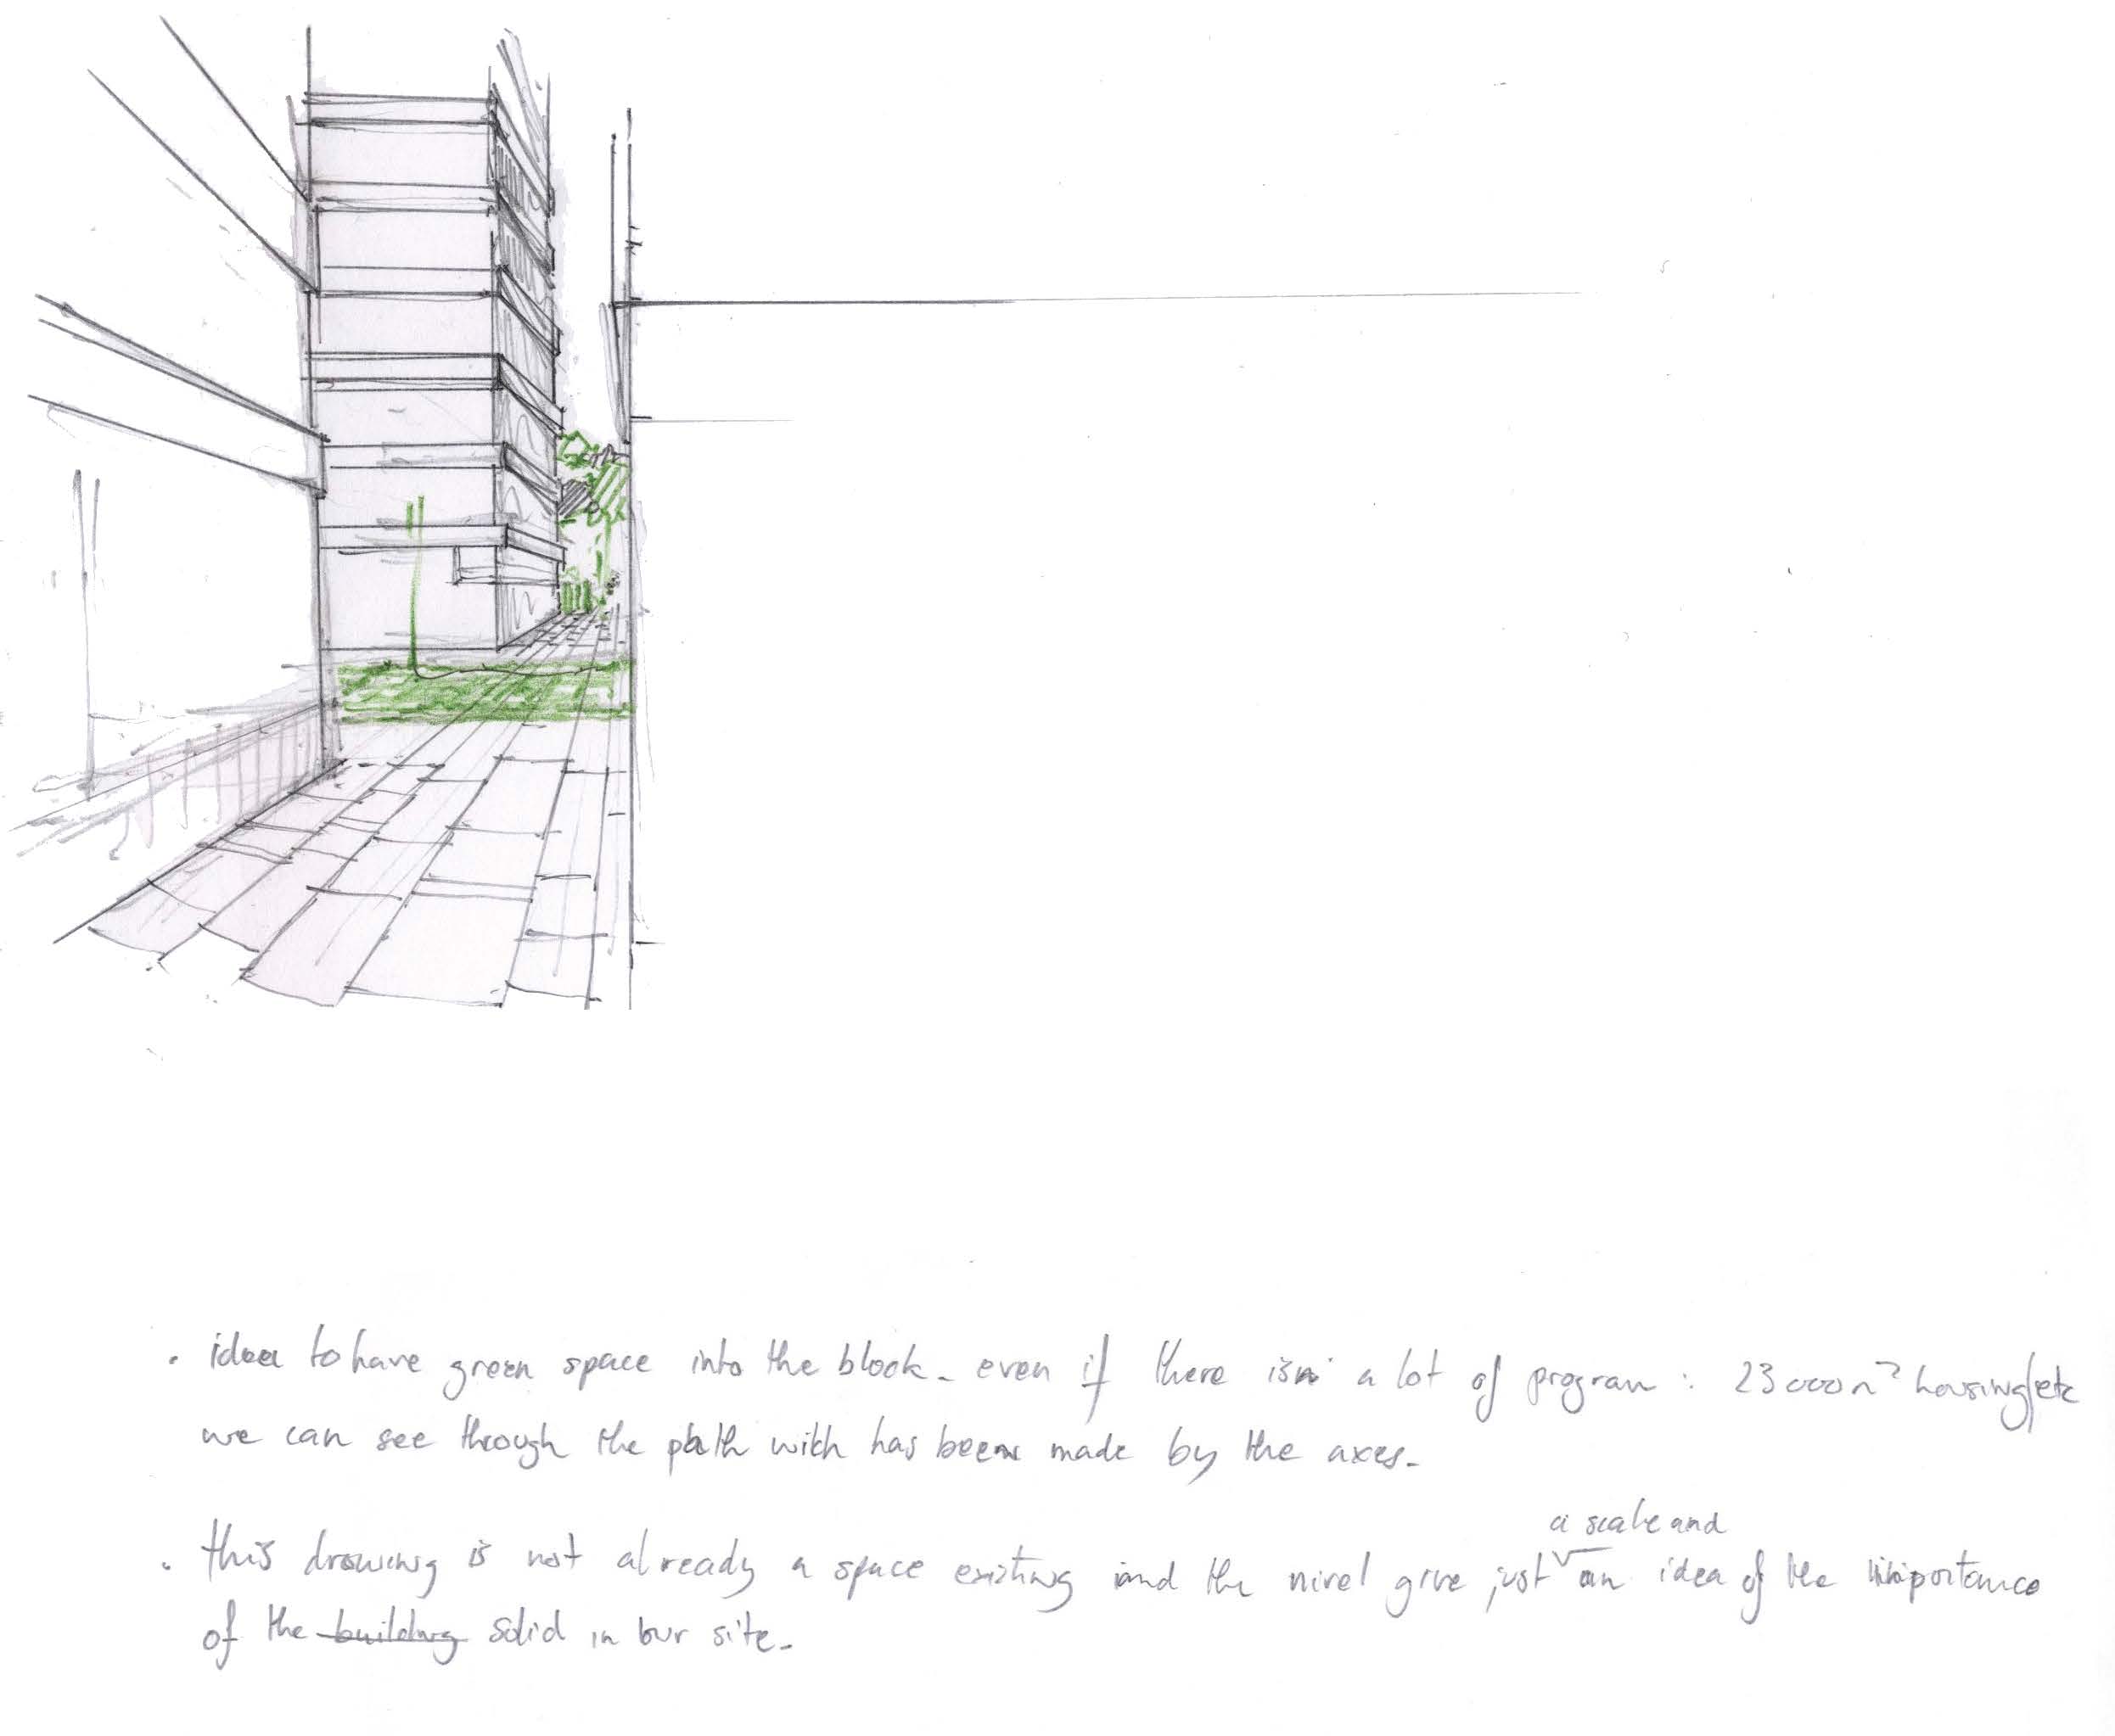 . idea to have green space into the block - even if there isn a lot of program : 23 000 m² housing/etc
we can see through the path wich has been made by the axes -
a scale and
. this drawing is not already a space existing and the nivel give just an idea of the importance
of the building solid in our site -